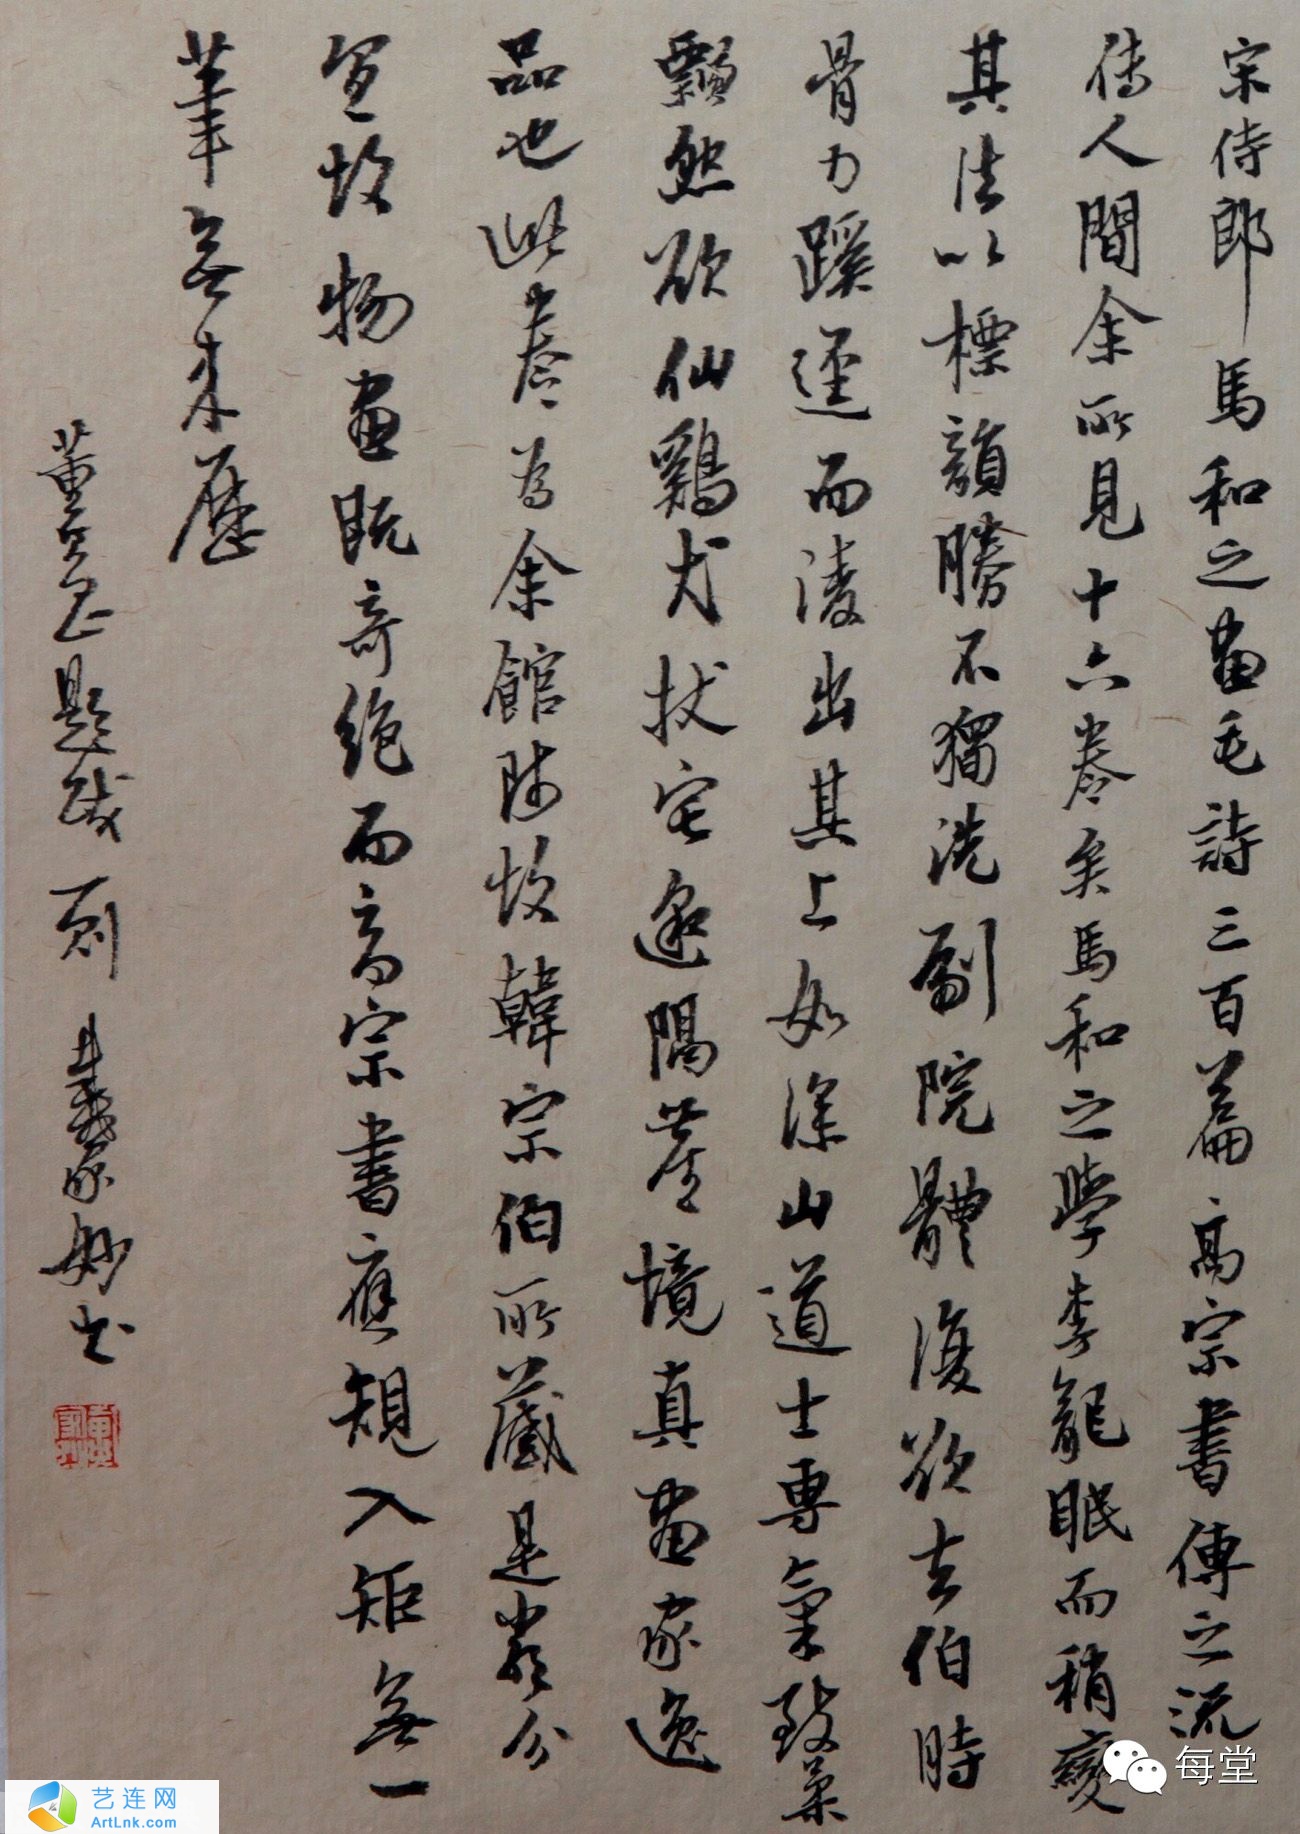 宋侍郎馬和之畫毛詩三百篇高宗書傳之流
傳人間余所見十六卷矣馬和之學李龍眠而稍變
其法以標韻勝不獨洗刷院體復欲去伯時
骨力蹊逕而淩出其上如深山道士專氣致柔
飄然欲仙鷄犬拔宅邈隔塵境真畫家逸
品也此卷為余館師故韓宗伯所藏是嚴分
宜故物畫既奇絕而高宗書應規入矩無一
筆無來歷
董其昌題跋一則 家妙書
每堂
艺连网
ArtLnk.com